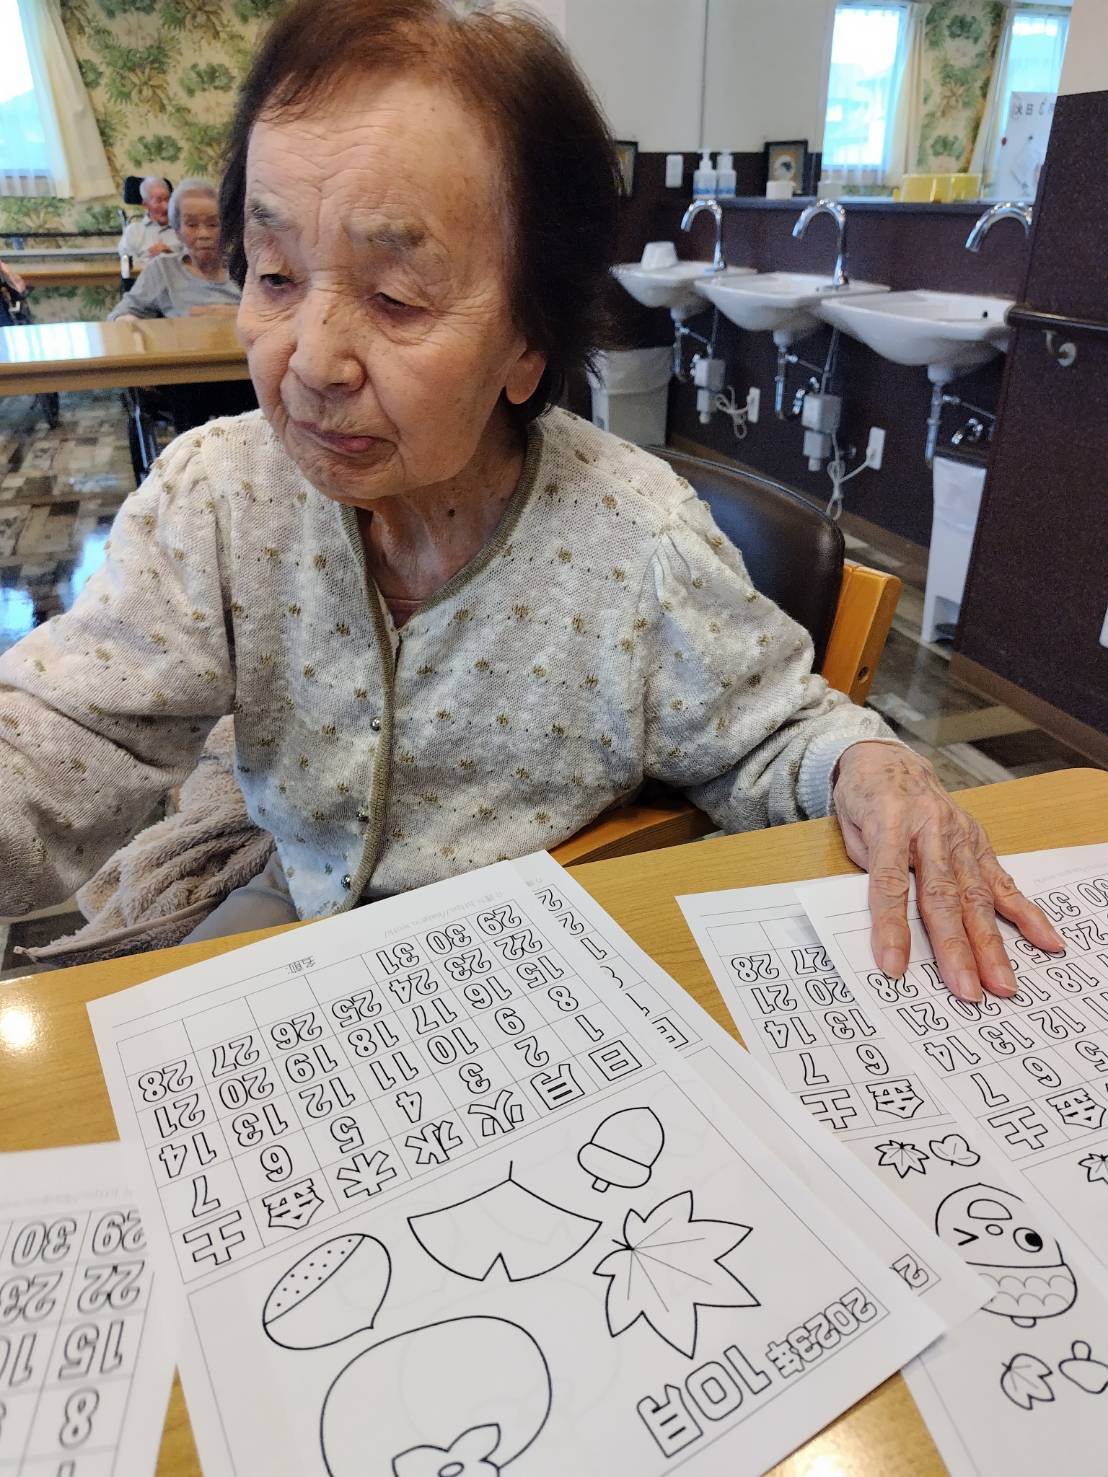 2023年10月
日 月 火 水 木 金 土
1 2 3 4 5 6 7
8 9 10 11 12 13 14
15 16 17 18 19 20 21
22 23 24 25 26 27 28
29 30 31
名前
金 土
6 7
13 14
20 21
27 28
金 土
5 6 7
12 13 14
18 19 20 21
24 28
30 31
29 30
22 23
15 16
8
2
日
1